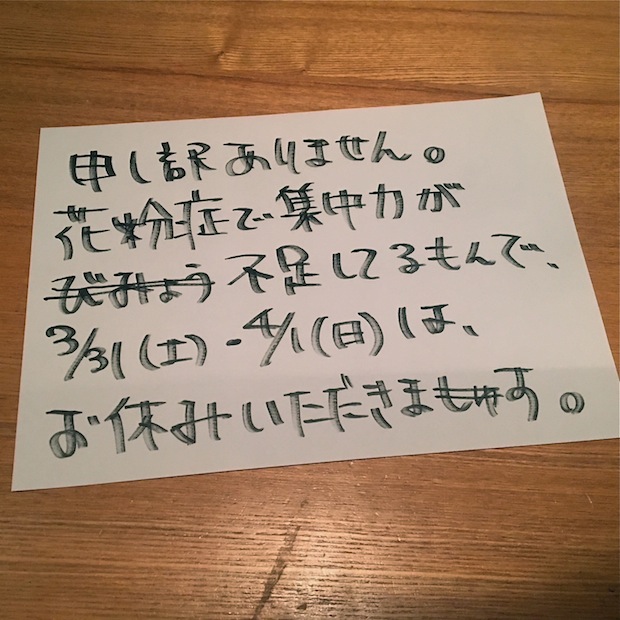 申し訳ありません。
花粉症で集中力が
びみょう 不足してるもんで、
3/31(土)・4/1(日)は、
お休みいただきます。